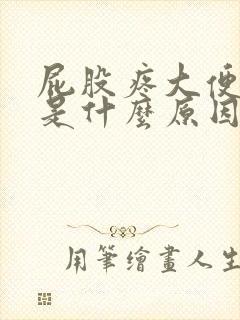 屁股疼大便
是什麼原因
用筆繪畫人生